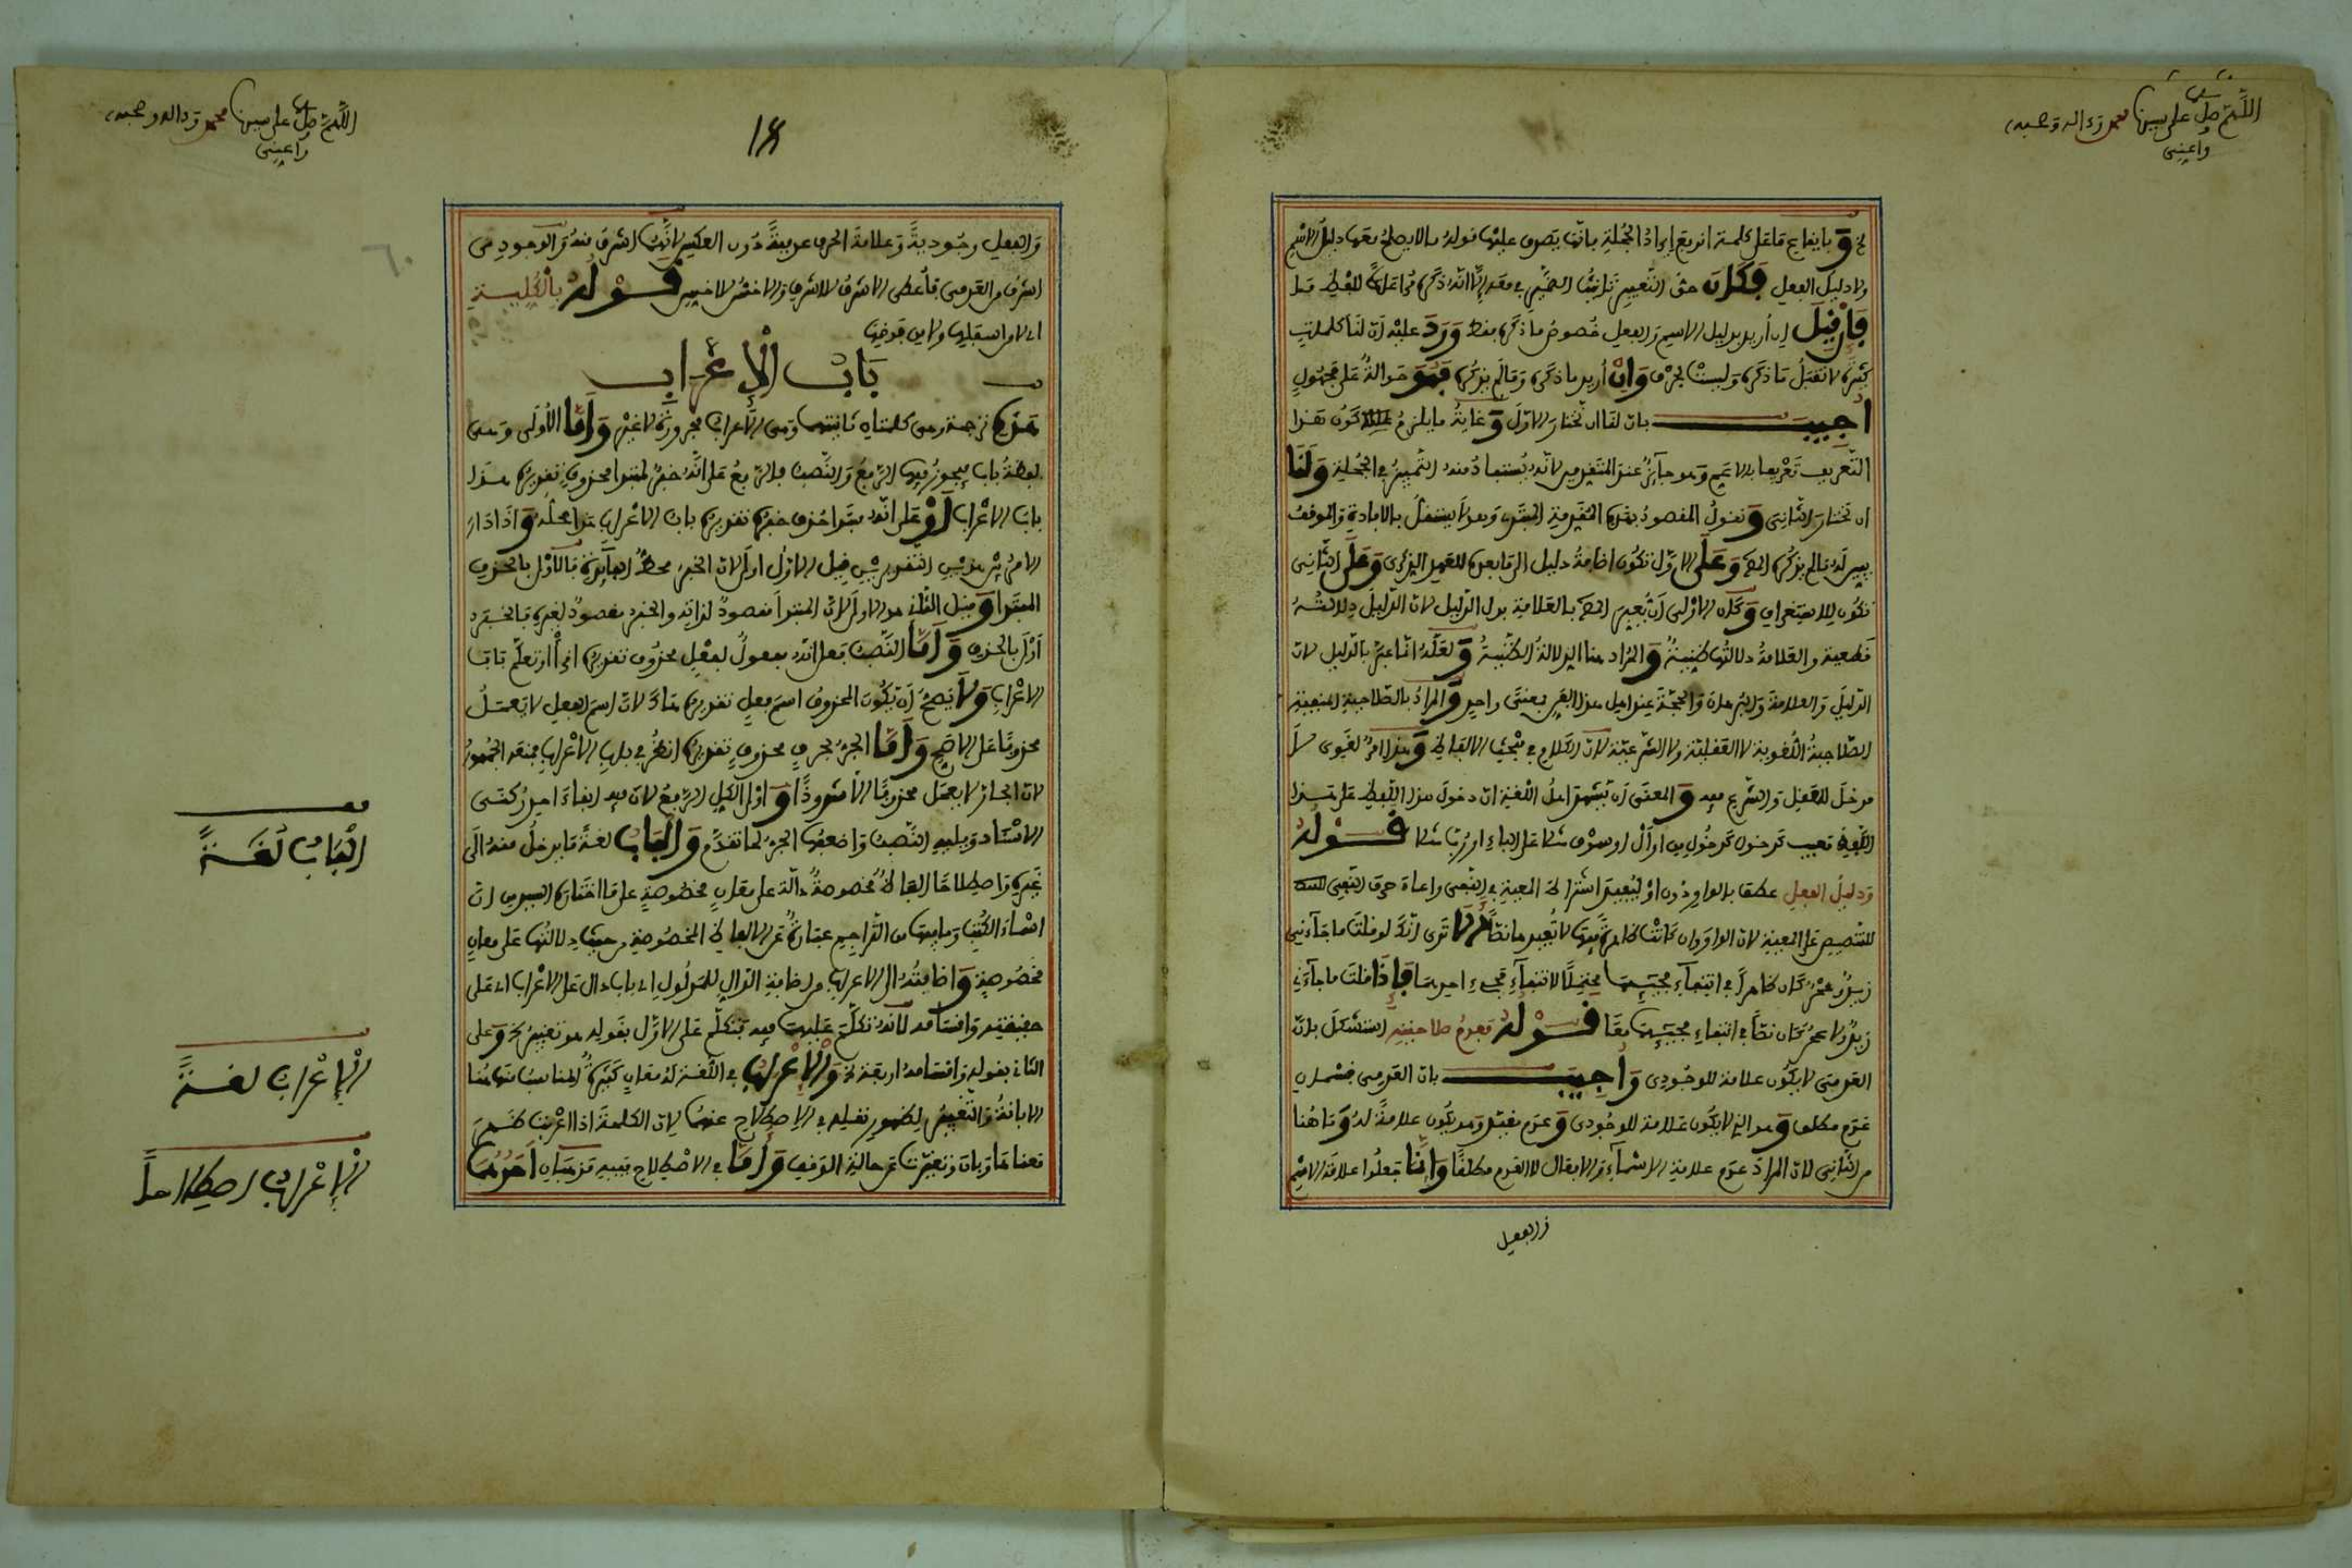 اللهم صل على سيدنا محمد وءاله وصحبه
واعنى
ولا دليل الفعل وكان حق التعبير
فإن قيل إن أريد بدليل الاسم والفعل خصوص ما ذكره فقط ورد عليه أن لنا كلمات
كثيرة لا تقبل ما ذكره وليست بحرف وإن أريد ما ذكره وما لم يذكره فهو حوالة على مجهول
أجيب بان لنا ان نختار الاول وغاية ما يلزم كون هذا
التعريف تعريفا بالاعم وهو جائز عند المتقدمين لانه يستفاد منه التمييز في الجملة ولنا
ان نختار الثانى ونقول المقصود بهذه المقدمة المبتدى وهو لا يستقل بالافادة والموقف
يبين له ما لم يذكره وعلى الاول تكون اضافة دليل الى ما بعده للعهد الذكرى وعلى الثانى
تكون للاستغراق وكان الاولى ان يعبر بالعلامة بدل الدليل لان الدليل دلالته
قطعية والعلامة دلالتها ظنية والمراد هنا الدلالة الظنية ولعله انما عبر بالدليل لان
الدليل والعلامة والبرهان والحجة عند اهل هذا الفن بمعنى واحد والمراد بالصلاحية المنفية
الصلاحية اللغوية لا العقلية ولا الشرعية لان الكلام في مبحث الالفاظ وهذا امر لغوى لا
مدخل للعقل والشرع فيه والمعنى ان يشهد اهل اللغة ان دخول هذا اللفظ على هذا
اللفظ معيب كدخول قولـه
ودليل الفعل عطف بالواو دون او ليفيد اشتراك المعية في النفى واعاد حرف النفى
للتنصيص على المعية لان الواو وان كانت ظاهرة فيها لا تفيدها نصا ألا ترى انك لو قلت ما جاءنى
زيد وعمرو كان ظاهرا في انتفاء مجيئهما محتملا لانتفاء مجىء احدهما فاذا قلت ما جاءنى
زيد ولا عمرو كان نصا في انتفاء مجيئهما معا قولـه فعدم صلاحيته استشكل بان
العدمى لا يكون علامة للوجودى وأجيب بان العدمى قسمان
عدم مطلق وهو الذى لا يكون علامة للوجودى وعدم مقيد وهو يكون علامة له وما هنا
من الثانى لان المراد عدم علامة الاسماء والافعال لا العدم مطلقا وانما جعلوا علامة الاسم
والفعل
١٤
اللهم صل على سيدنا محمد وءاله وصحبه
واعنى
والفعل وجودية وعلامة الحرف عدمية دون العكس لانهما اشرف منه والوجودى
اشرف من العدمى فأعطى الاشرف للاشرف والاخس للاخس قولـه بالكلية
اى لا من اسفلها ولا من فوقها
باب الإعراب
هذه ترجمة وهى كلمتان ثانيتهما وهى الاعراب مجرورة لا غير وأما الأولى وهى
لفظة باب فيجوز فيها الرفع والنصب فالرفع على انه خبر لمبتدا محذوف تقديره هذا
باب الاعراب أو على انه مبتدا حذف خبره تقديره باب الاعراب هذا محله واذا دار
الامر بين هذين التقديرين قيل الاول اولى لان الخبر محط الفائدة فالاولى بالحذف
المبتدا وقيل الثانى هو الاولى لان المبتدا مقصود لذاته والخبر مقصود لغيره فالخبر
اولى بالحذف وأما النصب فعلى انه مفعول لفعل محذوف تقديره اقرأ او تعلم باب
الاعراب ولا يصح ان يكون المحذوف اسم فعل تقديره هاك لان اسم الفعل لا يعمل
محذوفا على الاصح وأما الجر بحرف محذوف تقديره انظر في باب الاعراب فمنعه الجمهور
لان الجار لا يعمل محذوفا الا شذوذا واولى الكل الرفع لان فيه ابقاء احد ركنى
الاسناد ويليه النصب واضعفها الجر لما تقدم والباب لغة ما يدخل منه الى
غيره واصطلاحا الفاظ مخصوصة دالة على معان مخصوصة على ما اختاره السيد من ان
اسماء الكتب وما فيها من التراجم عبارة عن الالفاظ المخصوصة من حيث دلالتها على معان
مخصوصة واضافته الى الاعراب من اضافة الدال للمدلول اى باب دال على الاعراب اى على
حقيقته واقسامه لانه تكلم عليهما فيه فتكلم على الاول بقوله هو تغيير وعلى
الثانى بقوله واقسامه اربعة والإعراب في اللغة له معان كثيرة المناسب منها هنا
الابانة والتغيير لظهور نقله في الاصطلاح عنهما لان الكلمة اذا اعربت ظهر
معناها وبان وتغيرت عن حالة الوقف وأما في الاصطلاح ففيه مذهبان احدهما
الباب لغة
الإعراب لغة
الإعراب اصطلاحا